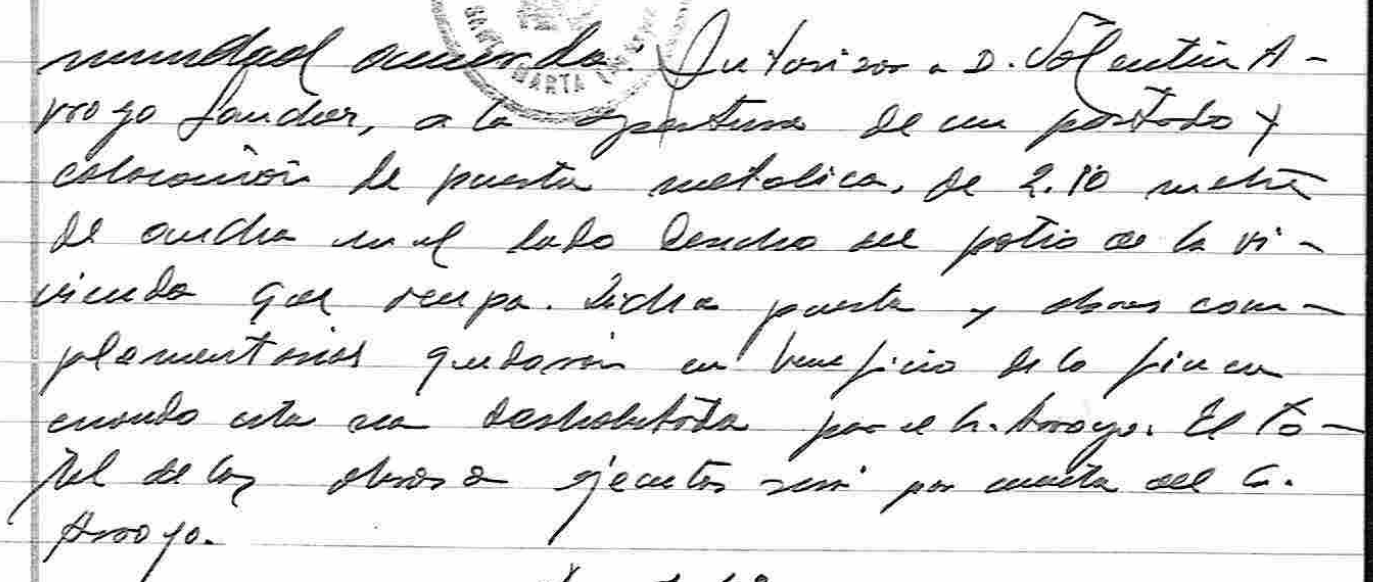 nimidad acuerda. Autorizar a D. Valentín A-
rroyo Sanchez, a la apertura de un portado y
colocación de puerta metalica, de 2.10 metros
de ancha en el lado derecho del patio de la vi-
vienda que ocupa. Dicha puerta y obras com-
plementarias quedarán en beneficio de la finca
cuando esta sea deshabitada por el Sr. Arroyo. El to-
tal de las obras a ejecutar será por cuenta del Sr.
Arroyo.
MARTA